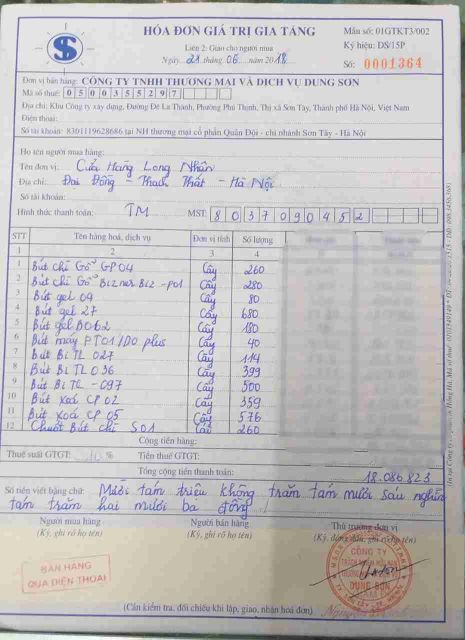 HÓA ĐƠN GIÁ TRỊ GIA TĂNG
Liên 2: Giao cho người mua
Ngày 21 tháng 06 năm 2018
Mẫu số: 01GTKT3/002
Ký hiệu: DS/15P
Số: 0001364
S
Đơn vị bán hàng: CÔNG TY TNHH THƯƠNG MẠI VÀ DỊCH VỤ DUNG SƠN
Mã số thuế: 0500355297
Địa chỉ: Khu Công ty xây dựng, Đường Đê La Thành, Phường Phú Thịnh, Thị xã Sơn Tây, Thành phố Hà Nội, Việt Nam
Điện thoại:
Số tài khoản: 8301119628686 tại NH thương mại cổ phần Quân Đội - chi nhánh Sơn Tây - Hà Nội
Họ tên người mua hàng:
Tên đơn vị: Cửa Hàng Long Nhân
Địa chỉ: Đại Đồng - Thạch Thất - Hà Nội
Số tài khoản:
Hình thức thanh toán: TM MST: 8037090452
STT Tên hàng hoá, dịch vụ Đơn vị tính Số lượng
1 2 3 4
1 Bút chì Gỗ GP04 Cây 260
2 Bút chì Gỗ Bizner Biz -P01 Cây 280
3 Bút gel 09 Cây 80
4 Bút gel 27 Cây 680
5 Bút gel B062 Cây 180
6 Bút máy PT01/DO plus Cây 40
7 Bút Bi TL 027 Cây 114
8 Bút Bi TL 036 Cây 399
9 Bút Bi TL - 097 Cây 500
10 Bút xoá CP 02 Cây 359
11 Bút xoá CP 05 Cây 576
12 Chuốt Bút chì S01 Cái 260
Cộng tiền hàng:
Thuế suất GTGT: 10 % Tiền thuế GTGT:
Tổng cộng tiền thanh toán: 18.086.823
Số tiền viết bằng chữ: Mười tám triệu không trăm tám mươi sáu nghìn
tám trăm hai mươi ba đồng
Người mua hàng Người bán hàng Thủ trưởng đơn vị
(Ký, ghi rõ họ tên) (Ký, ghi rõ họ tên) (Ký, đóng dấu, ghi rõ họ tên)
BÁN HÀNG
QUA ĐIỆN THOẠI
CÔNG TY
TRÁCH NHIỆM HỮU HẠN
DUNG SƠN
(Cần kiểm tra, đối chiếu khi lập, giao, nhận hoá đơn)